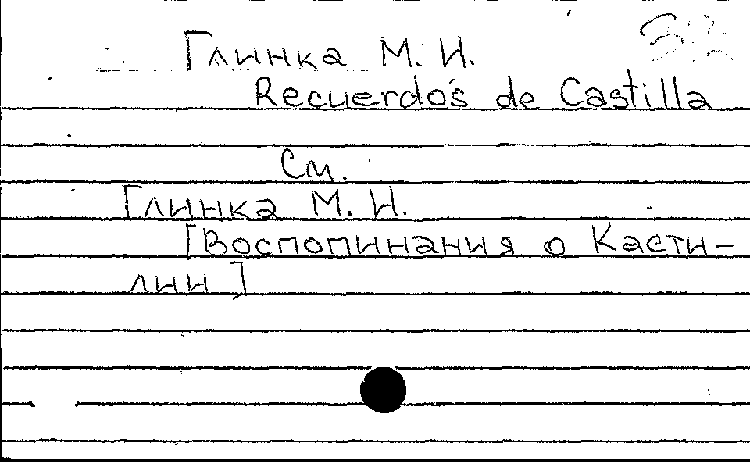 Глинка М. И.
Recuerdos de Castilla
См.
Глинка М. И.
[Воспоминания о Касти-
лии]